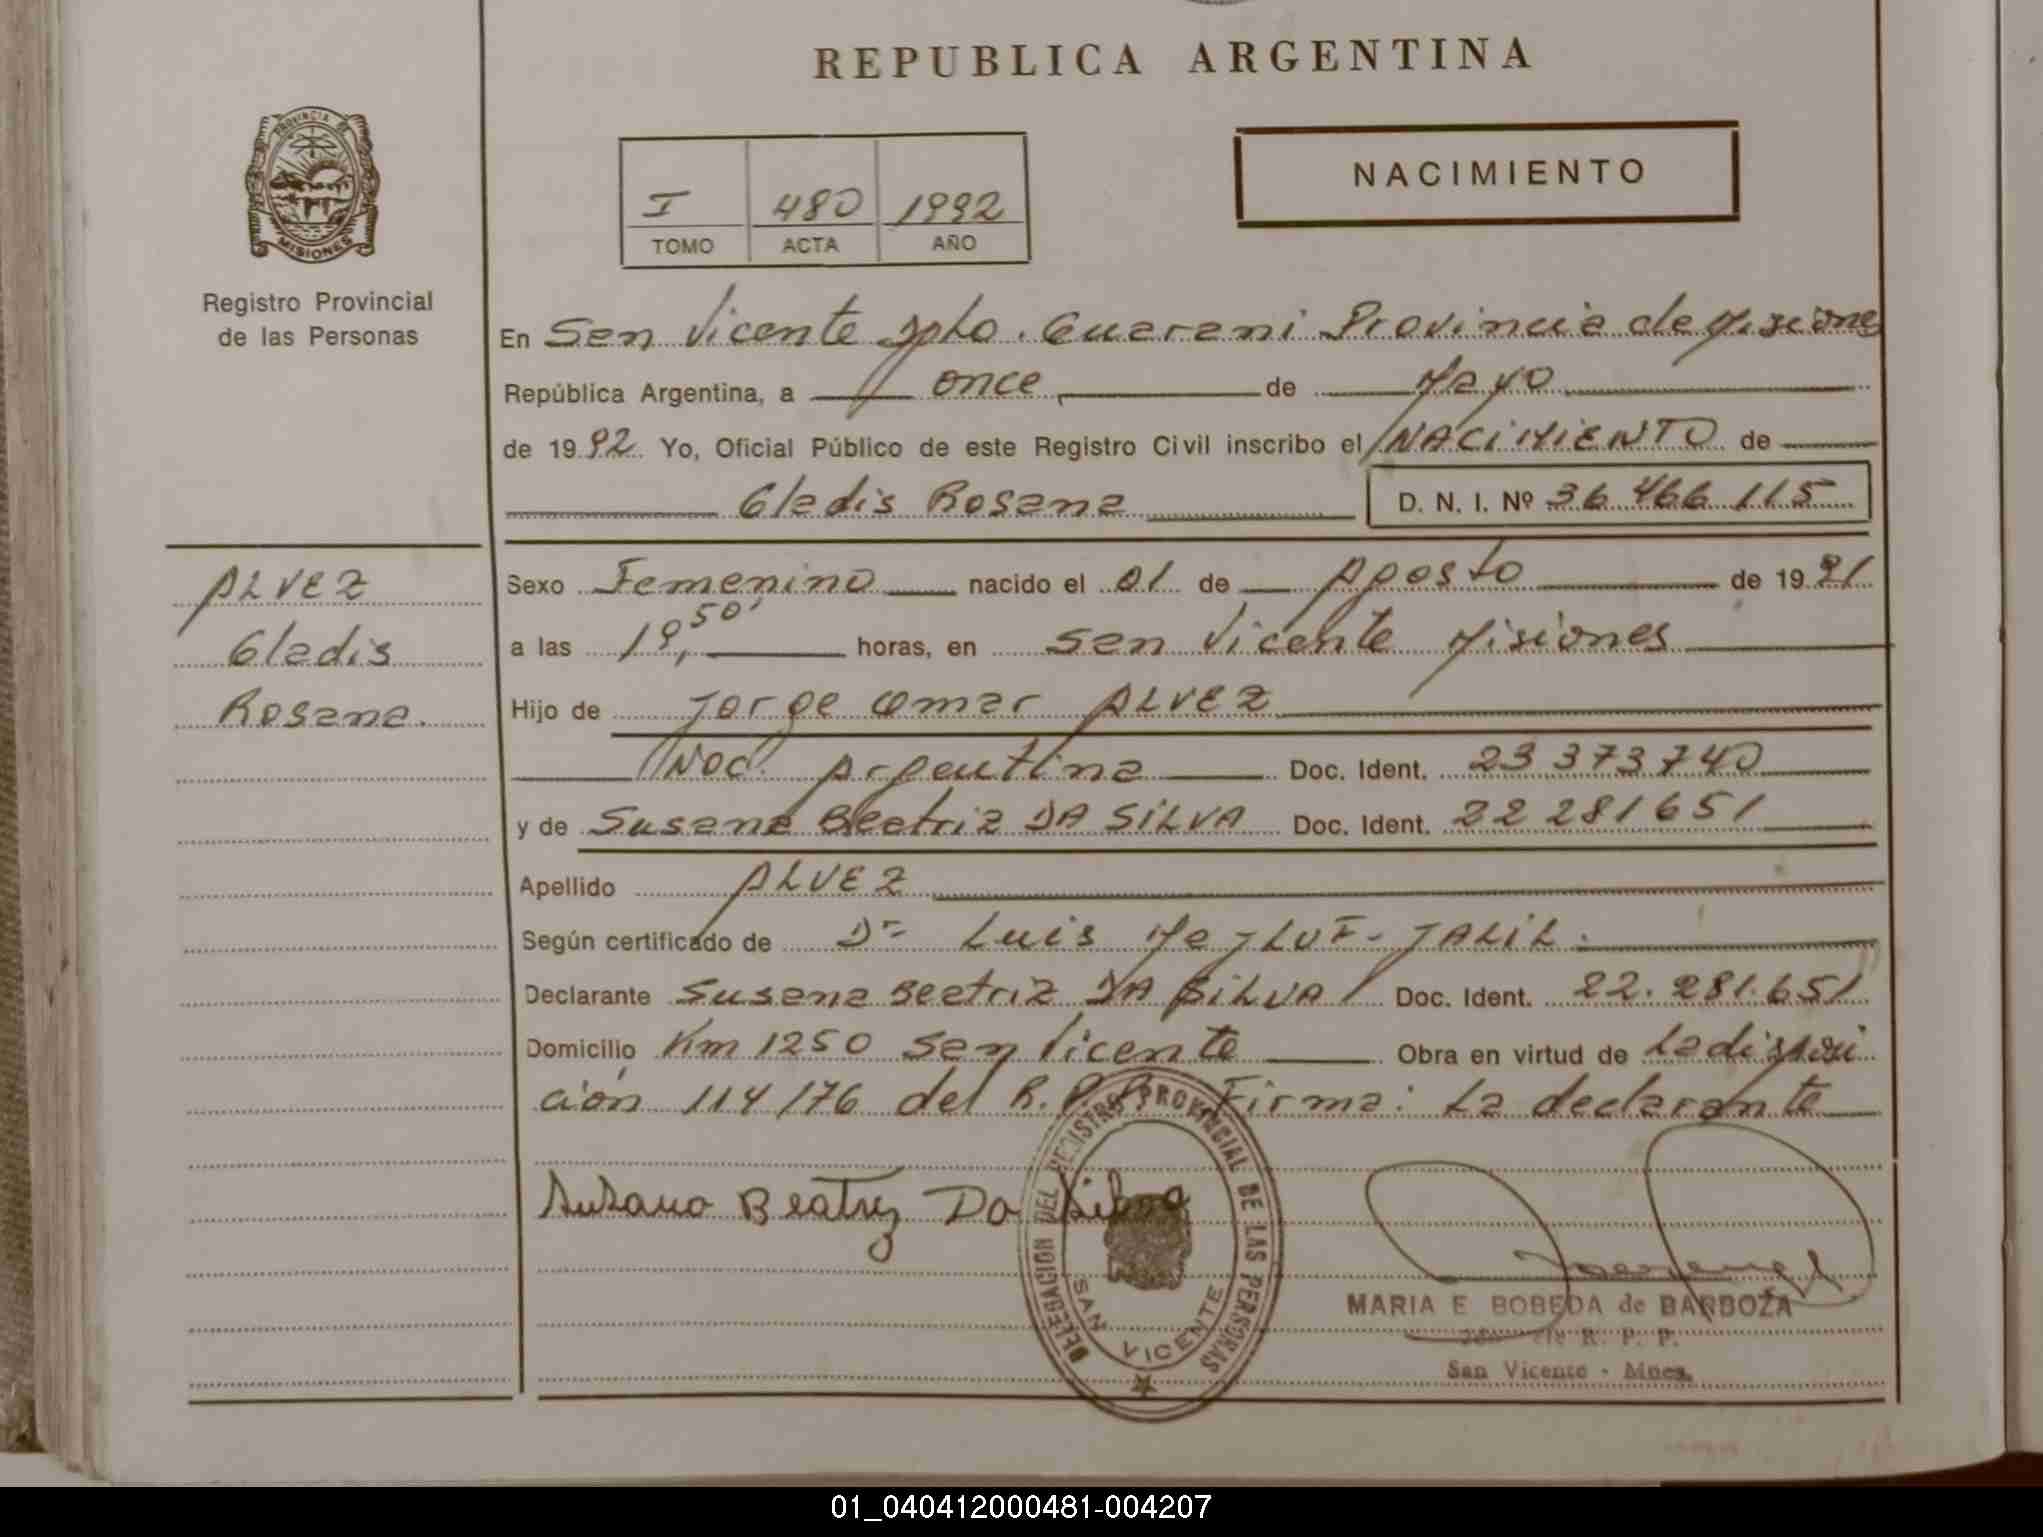 REPUBLICA ARGENTINA
PROVINCIA DE
MISIONES
Registro Provincial
de las Personas
I 480 1992
TOMO ACTA AÑO
NACIMIENTO
En San Vicente Dpto. Guarani Provincia de Misiones
República Argentina, a once de Mayo
de 1992 Yo, Oficial Público de este Registro Civil inscribo el NACIMIENTO de
Gladis Rosana D. N. I. Nº 36 466 115
ALVEZ
Gladis
Rosana.
Sexo Femenino nacido el 01 de Agosto de 1991
a las 19,50' horas, en San Vicente Misiones
Hijo de Jorge Omar ALVEZ
Nac. Argentina Doc. Ident. 23 373 740
y de Susana Beatriz DA SILVA Doc. Ident. 22 281 651
Apellido ALVEZ
Según certificado de Dr Luis JALIL.
Declarante Susana Beatriz DA SILVA Doc. Ident. 22.281.651
Domicilio Km 1250 San Vicente Obra en virtud de La disposi
ción 114/76 del R.P.P. Firma: La declarante
Susana Beatriz Da Silva
DELEGACION DEL REGISTRO PROVINCIAL DE LAS PERSONAS
SAN VICENTE
MARIA E BOBEDA de BARBOZA
R. P. P.
San Vicente - Mnes.
01_040412000481-004207